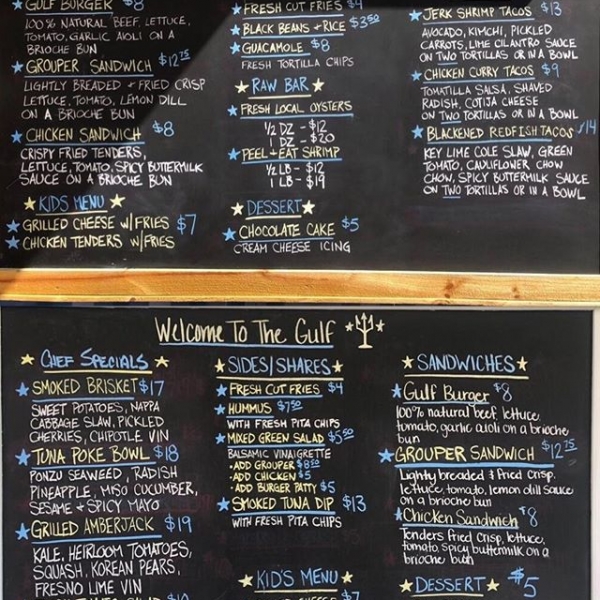 GULF BURGER $8
100% NATURAL BEEF, LETTUCE,
TOMATO, GARLIC AIOLI ON A
BRIOCHE BUN
GROUPER SANDWICH $12.75
LIGHTLY BREADED + FRIED CRISP
LETTUCE, TOMATO, LEMON DILL
ON A BRIOCHE BUN
CHICKEN SANDWICH $8
CRISPY FRIED TENDERS,
LETTUCE, TOMATO, SPICY BUTTERMILK
SAUCE ON A BRIOCHE BUN
KIDS MENU
GRILLED CHEESE W/FRIES $7
CHICKEN TENDERS W/FRIES
FRESH CUT FRIES $4
BLACK BEANS + RICE $3.50
GUACAMOLE $8
FRESH TORTILLA CHIPS
RAW BAR
FRESH LOCAL OYSTERS
1/2 DZ - $12
1 DZ - $20
PEEL + EAT SHRIMP
1/2 LB - $12
1 LB - $19
DESSERT
CHOCOLATE CAKE $5
CREAM CHEESE ICING
JERK SHRIMP TACOS $13
AVOCADO, KIMCHI, PICKLED
CARROTS, LIME CILANTRO SAUCE
ON TWO TORTILLAS OR IN A BOWL
CHICKEN CURRY TACOS $9
TOMATILLA SALSA, SHAVED
RADISH, COTIJA CHEESE
ON TWO TORTILLAS OR IN A BOWL
BLACKENED REDFISH TACOS $14
KEY LIME COLE SLAW, GREEN
TOMATO, CAULIFLOWER CHOW
CHOW, SPICY BUTTERMILK SAUCE
ON TWO TORTILLAS OR IN A BOWL
Welcome To The Gulf
CHEF SPECIALS
SMOKED BRISKET $17
SWEET POTATOES, NAPPA
CABBAGE SLAW, PICKLED
CHERRIES, CHIPOTLE VIN
TUNA POKE BOWL $18
PONZU SEAWEED, RADISH
PINEAPPLE, MISO CUCUMBER,
SESAME + SPICY MAYO
GRILLED AMBERJACK $19
KALE, HEIRLOOM TOMATOES,
SQUASH, KOREAN PEARS,
FRESNO LIME VIN
SIDES/SHARES
FRESH CUT FRIES $4
HUMMUS $7.50
WITH FRESH PITA CHIPS
MIXED GREEN SALAD $5.50
BALSAMIC VINAIGRETTE
-ADD GROUPER $8.50
-ADD CHICKEN $5
-ADD BURGER PATTY $5
SMOKED TUNA DIP $13
WITH FRESH PITA CHIPS
KID'S MENU
CHEESE $7
SANDWICHES
Gulf Burger $8
100% natural beef, lettuce,
tomato, garlic aioli on a brioche
bun
GROUPER SANDWICH $12.75
Lightly breaded & fried crisp,
lettuce, tomato, lemon dill sauce
on a brioche bun
Chicken Sandwich $8
Tenders fried crisp, lettuce,
tomato, spicy buttermilk on a
brioche bun
DESSERT $5